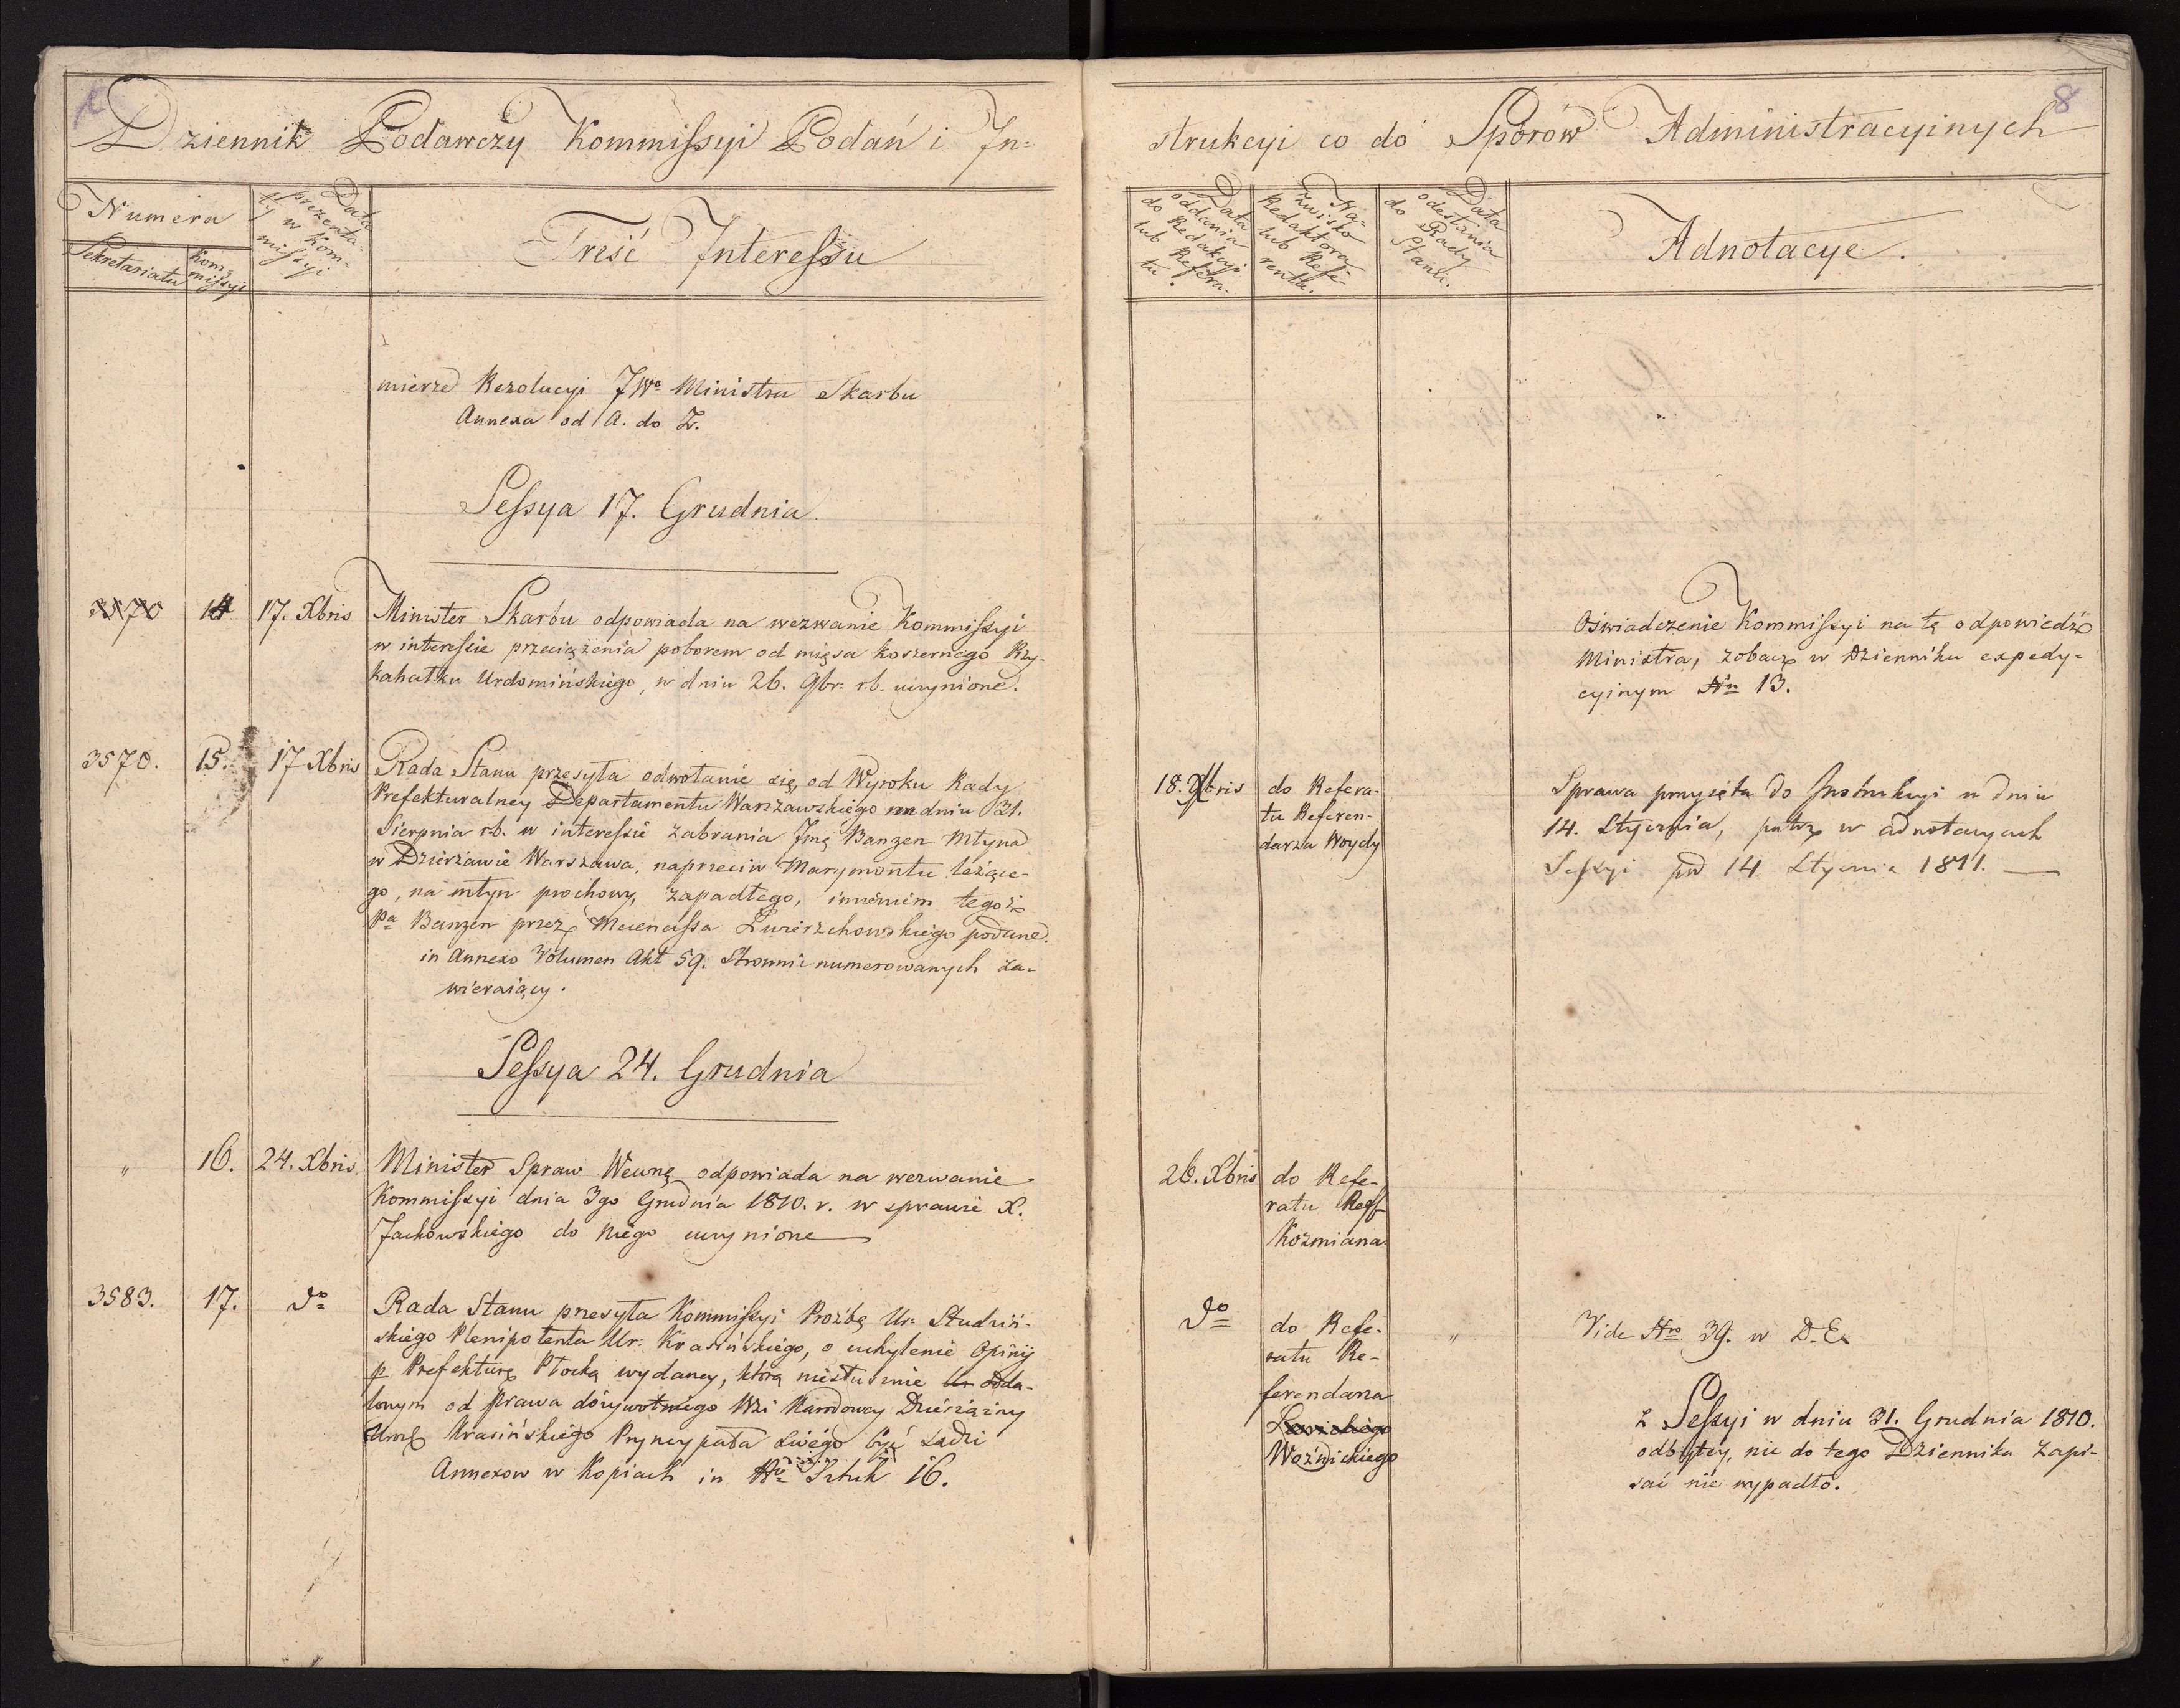 8
Dziennik Podawczy Kommissyi Podań i In=
strukcyi co do Sporów Administracyinych
Numera
Sekretariatu
Kommissyi
Data prezenta-
ty w Kom-
missyi
Treść Interessu
Data
oddania
do Redakcyi
lub Refera-
tu.
Na-
zwisko
Redaktora
lub Refe-
renta.
Data
odesłania
do Rady
Stanu.
Adnotacye.
mierze Rezolucyi JWo Ministra Skarbu
Annexa od A. do Z.
Sessya 17. Grudnia
3570 14 17. Xbris
Minister Skarbu odpowiada na wezwanie Kommissyi
w interessie przeciążenia poborem od mięsa koszernego
kahałku Urdomińskiego, w dniu 26. 9br: r.b. uczynione.
Oświadczenie Kommissyi na tę odpowiedź
Ministra, zobacz w Dzienniku expedy=
cyinym Nro 13.
3570. 15. 17 Xbris
Rada Stanu przesyła odwołanie się, od Wyroku Rady
Prefekturalney Departamentu Warszawskiego dniu 31.
Sierpnia r.b. w interessie zabrania Banzen Młyna
w Dzierżawie Warszawa, naprzeciw Marymontu leżące-
go, na młyn prochowy, zapadłego, imieniem tegoż
Pa Banzen przez Mecenassa Zwierzchowskiego podane.
in Annexo Volumen Akt 59. Stronnic numerowanych za-
wieraiący.
18. Xbris
do Refera-
tu Referen-
darza Woydy
Sprawa przyjęta do Instrukcyi w dniu
14. Stycznia, patrz w adnotacyach
Sessyi pod 14 Stycznia 1811. —
Sessya 24. Grudnia
" 16. 24. Xbris
Minister Spraw Wewnę odpowiada na wezwanie
Kommissyi dnia 3go Grudnia 1810. r. w sprawie X.
Jachowskiego do niego uczynione —
26. Xbris
do Refe-
ratu Reff
Kozmiana
3583. 17. do
Rada Stanu przesyła Kommissyi Prożbę Ur:
skiego Plenipotenta Ur: Krasińskiego, o uchylenie Opinij
p Prefekturę Płocką wydaney, którą niesłusznie odda-
lonym od prawa dożywotniego Wsi Narodowey
Krasińskiego Pryncypała swego być sądzi
Annexow w Kopiach in No Sztuk 16.
do
do Refe-
ratu Re-
ferendarza
Woźnickiego
"
Vide Nro 39. w D. E.
Z Sessyi w dniu 31. Grudnia 1810.
odbytey, nic do tego Dziennika zapi-
sać nie wypadło.